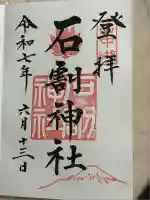 登拝
石割神社
令和七年
六月十三日